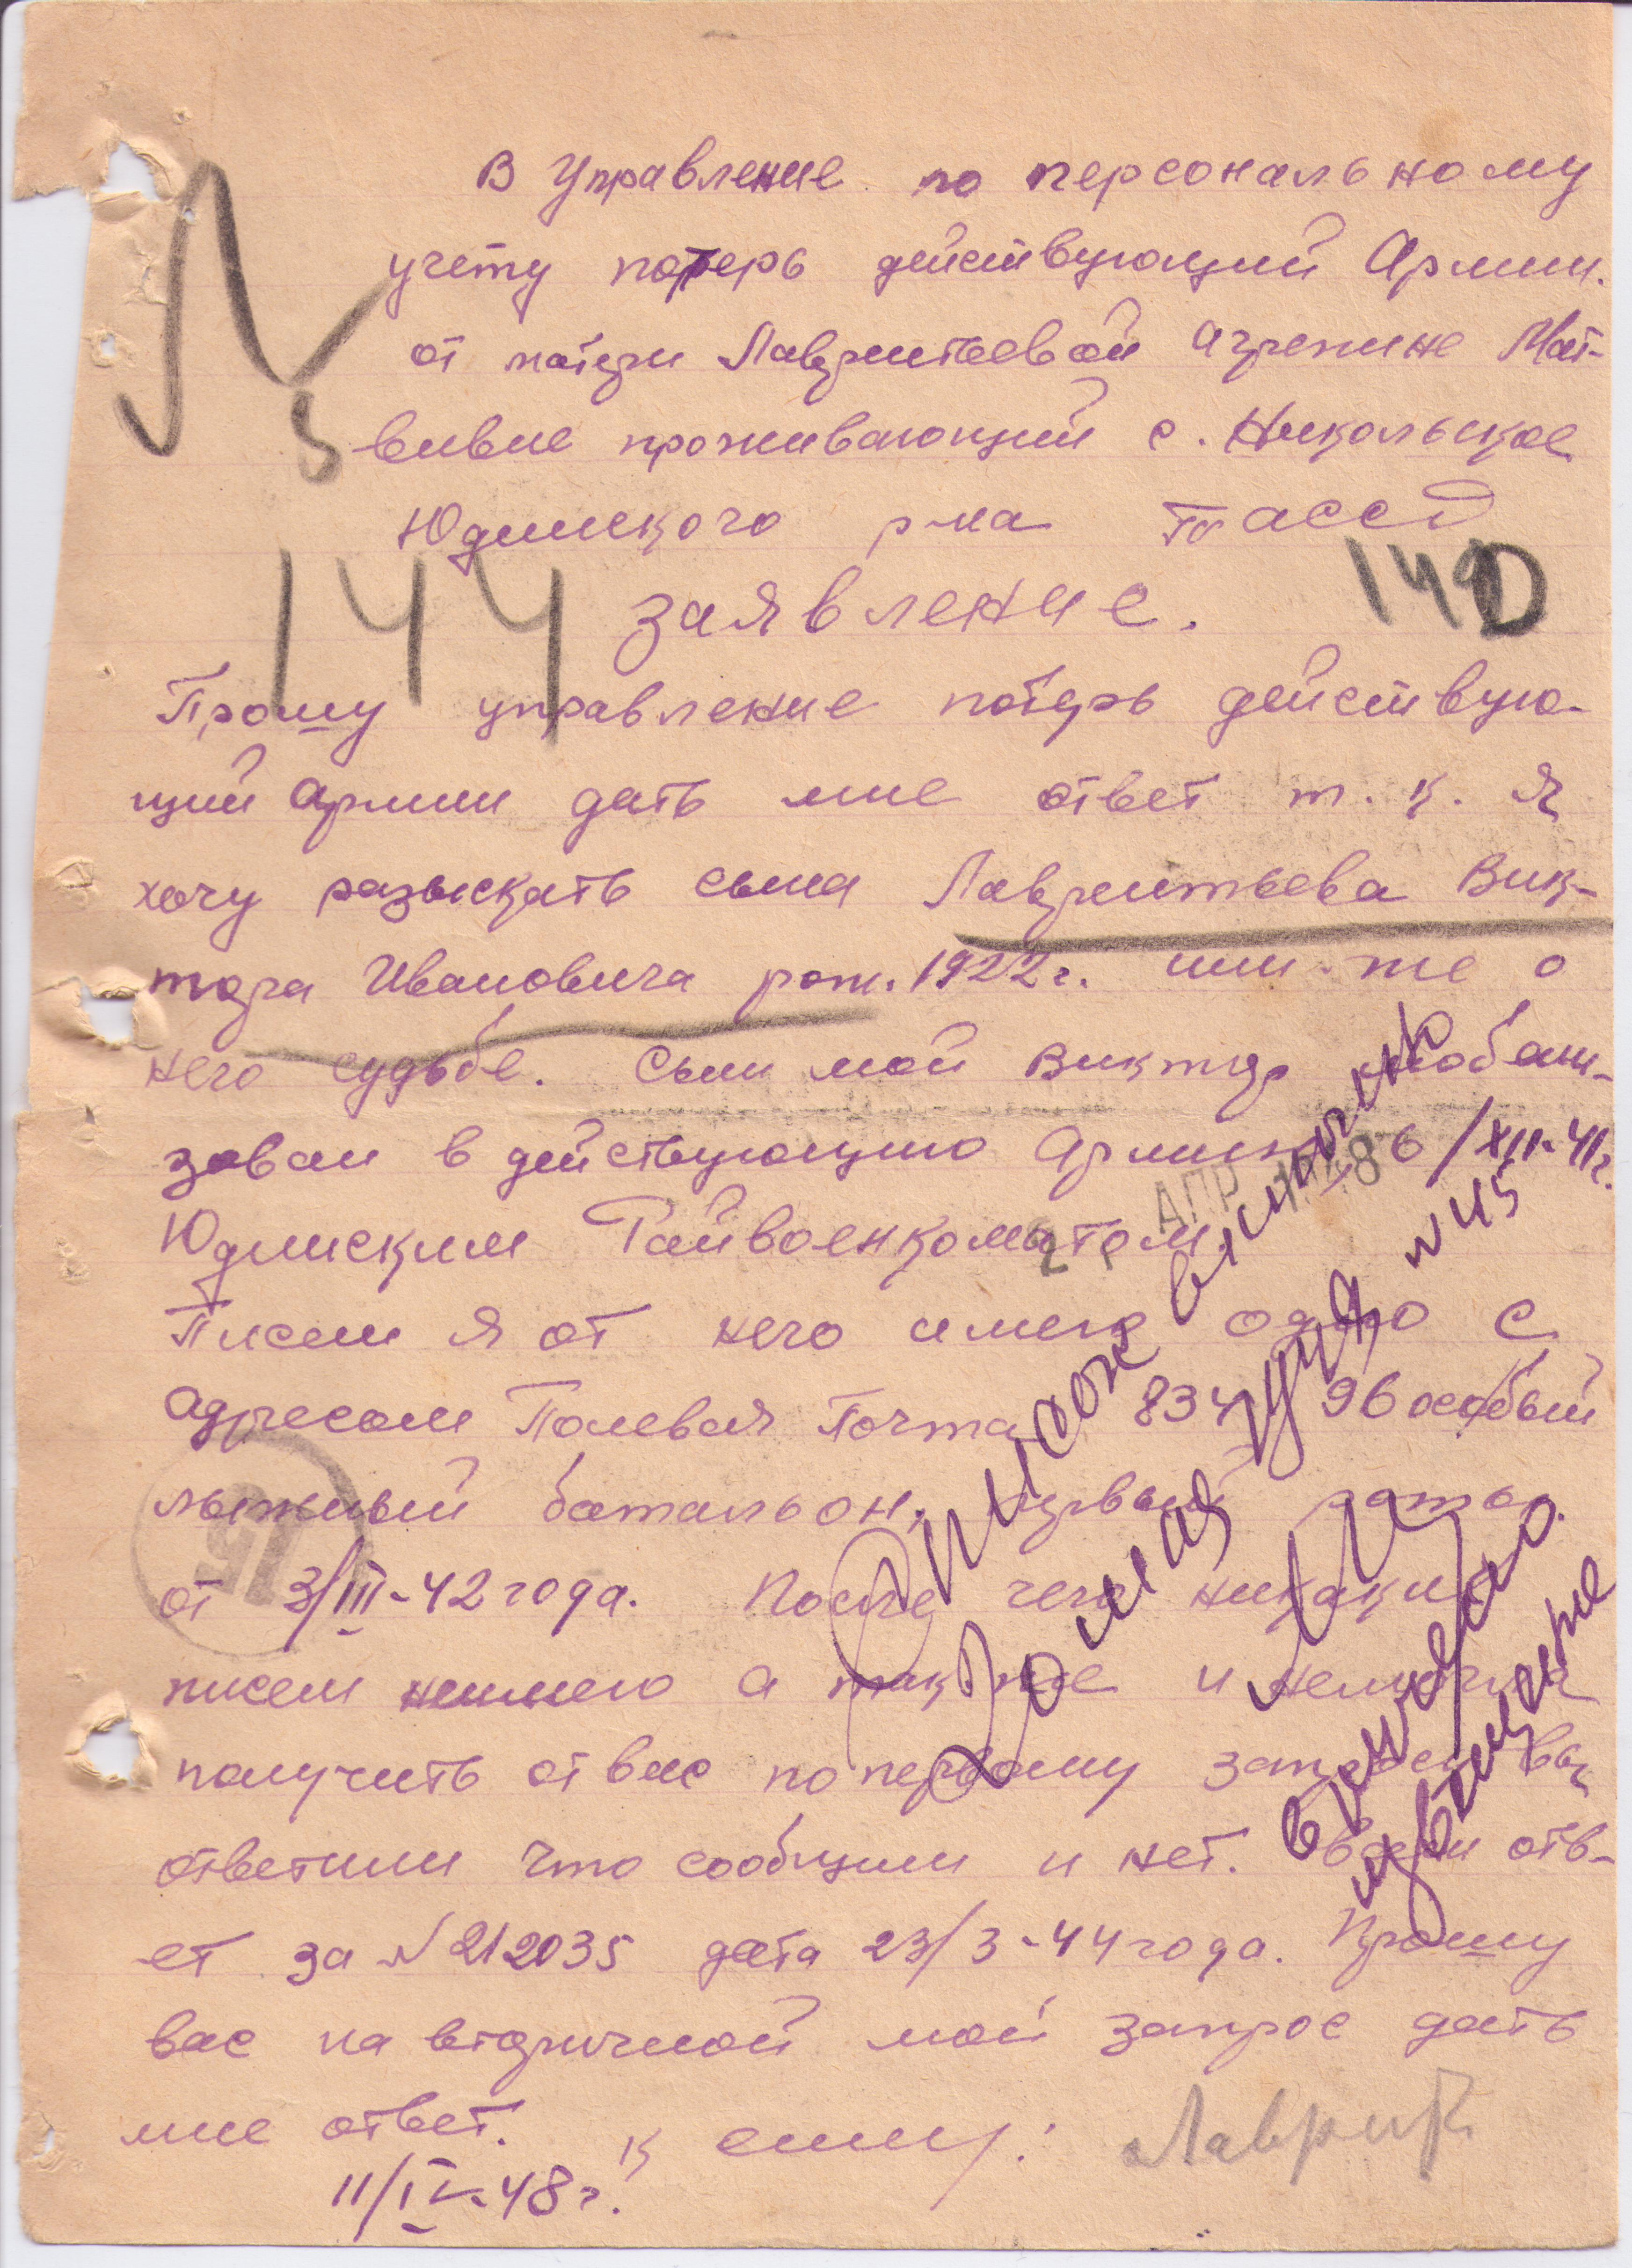 В Управление по персональному
учету потерь действующий Армии.
от матери Лаврентьевой Агрепине Мат-
вивне проживающий с. Никольское
Юдинского р-на ТАССР
144
140
5
заявление.
Прошу управление потерь действую-
щий Армии дать мне ответ т. к. я
хочу разыскать сына Лаврентьева Вик-
тора Ивановича рож. 1922 г. или же о
него судьбе. Сын мой Виктор мобели-
зован в действующию Армию 6/XII-41г.
Юдинским Райвоенкоматом.
Писем я от него имею одно с
адресом Полевая Почта 834 96 особый
лыжный батальон, первый роты.
от 3/III-42 года. После чего никаких
писем неимею а так же и немогла
получить от вас по первому запросу вы
ответили что сообщим и нет. ваш отв-
ет за №212035 дата 23/3-44 года. Прошу
вас на вторичной мой запрос дать
мне ответ.
к сему: Лаврент
11/IV-48г.
АПР 1948
15
Список
извещение